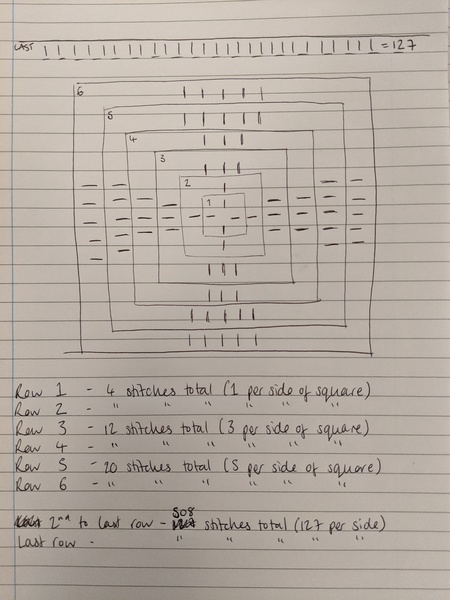 LAST = 127
6
5
4
3
2
1
Row 1 - 4 stitches total (1 per side of square)
Row 2 - " " " " " "
Row 3 - 12 stitches total (3 per side of square)
Row 4 - " " " " " "
Row 5 - 20 stitches total (5 per side of square)
Row 6 - " " " " " "
2nd to last row - 508 stitches total (127 per side)
Last row - " " " " "